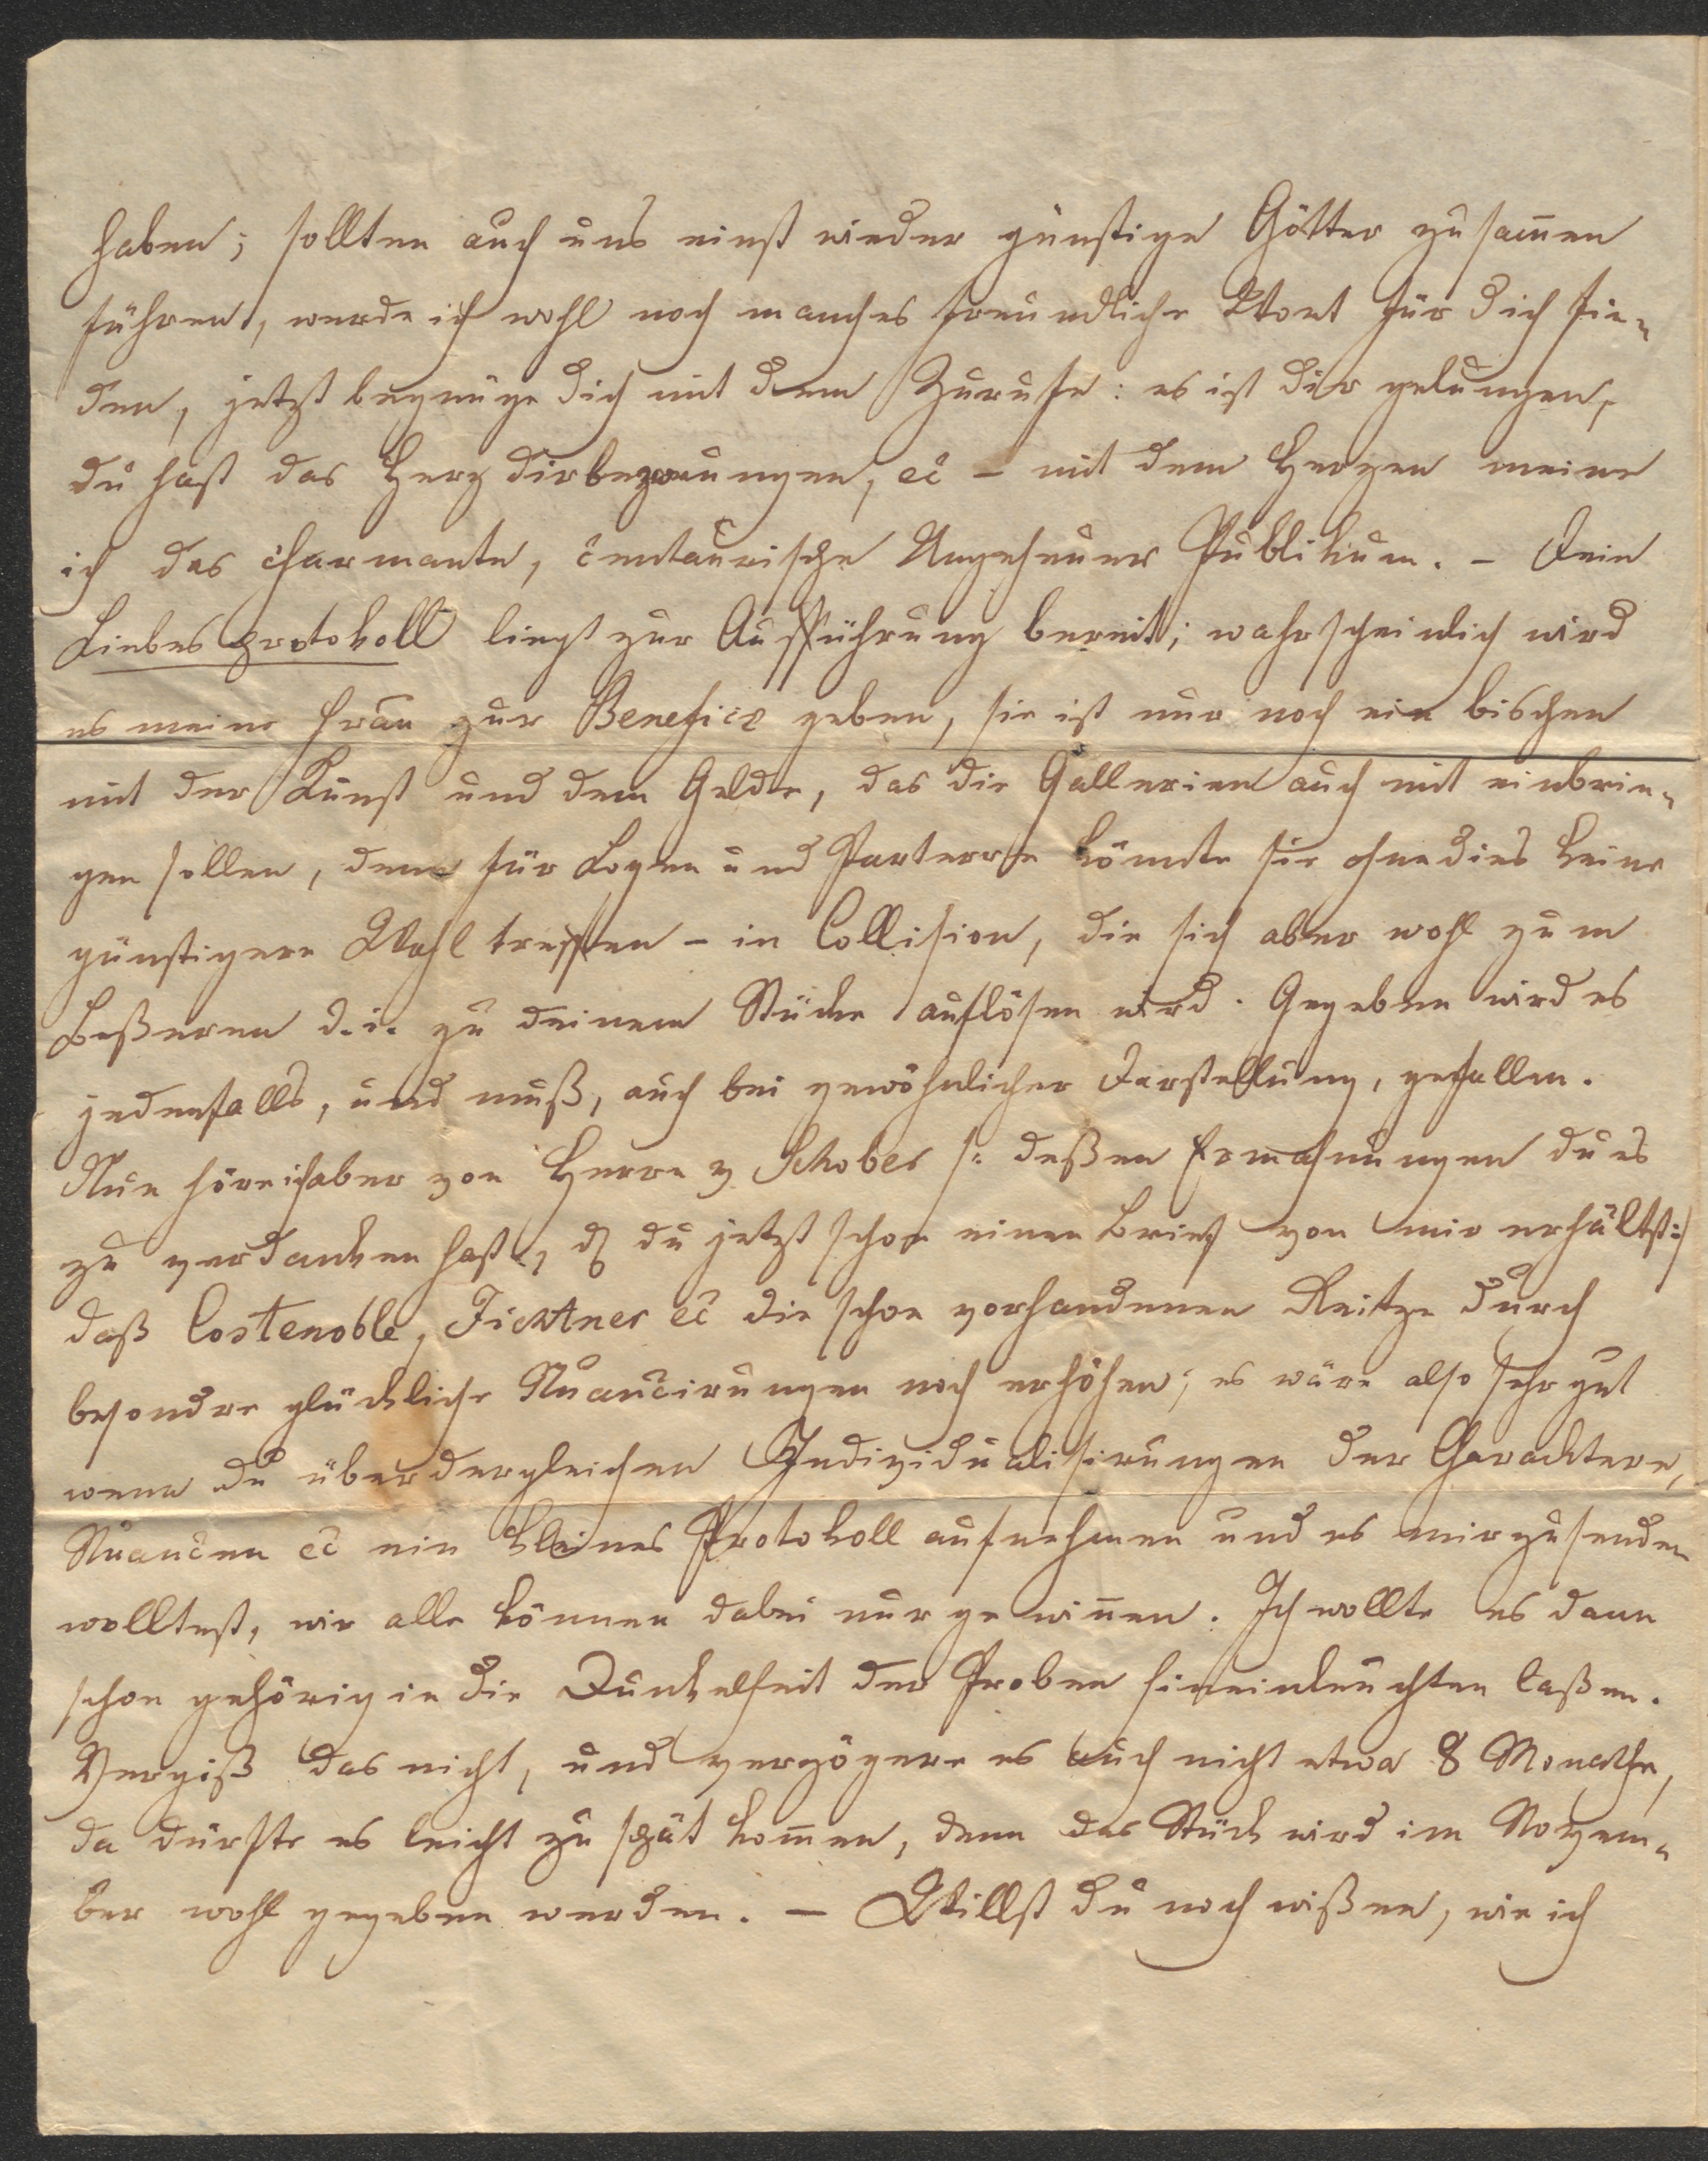 haben; sollten auch uns einst wieder günstige Götter zusam̅en
führen, werde ich wohl noch manches freundliche Wort für dich fin-
den, jetzt begnüge dich mit dem Zurufe: es ist dir gelungen,
du hast das Herz dir bezwungen, ec – mit dem Herzen meine
ich das charmante, centaurische Ungeheuer Publikum. – Dein
Liebesprotokoll liegt zur Aufführung bereit; wahrscheinlich wird
es meine Frau zur Benefice geben, sie ist nur noch ein bischen
mit der Kunst und dem Gelde, das die Gallerien auch mit einbrin-
gen sollen, denn für Logen und Parterre könnte sie ohnedies keine
günstigere Wahl treffen – in Collision, die sich aber wohl zum
Beßeren d. i. zu deinem Stücke auflösen wird. Gegeben wird es
jedenfalls, und muß, auch bei gewöhnlicher Darstellung, gefallen.
Nun höre ich aber von Herrn v Schober /: deßen Ermahnungen du es
zu verdanken hast, dß du jetzt schon einen Brief von mir erhältst :/
daß Costenoble, Fichtner ec die schon vorhandenen Reitze durch
besondre glückliche Nuancirungen noch erhöhen; es wäre also sehr gut
wenn du über dergleichen Individualisirungen der Charactere,
Nuancen ec ein kleines Protokoll aufnehmen und es mir zusenden
wolltest, wir alle können dabei nur gewin̅en. Ich wollte es dann
schon gehörig in die Dunkelheit der Proben hineinleuchten laßen.
Vergiß das nicht, und verzögere es auch nicht etwa 8 Monathe,
da dürfte es leicht zu spät kom̅en, denn das Stück wird im Novem-
ber wohl gegeben werden. – Willst du noch wißen, wie ich